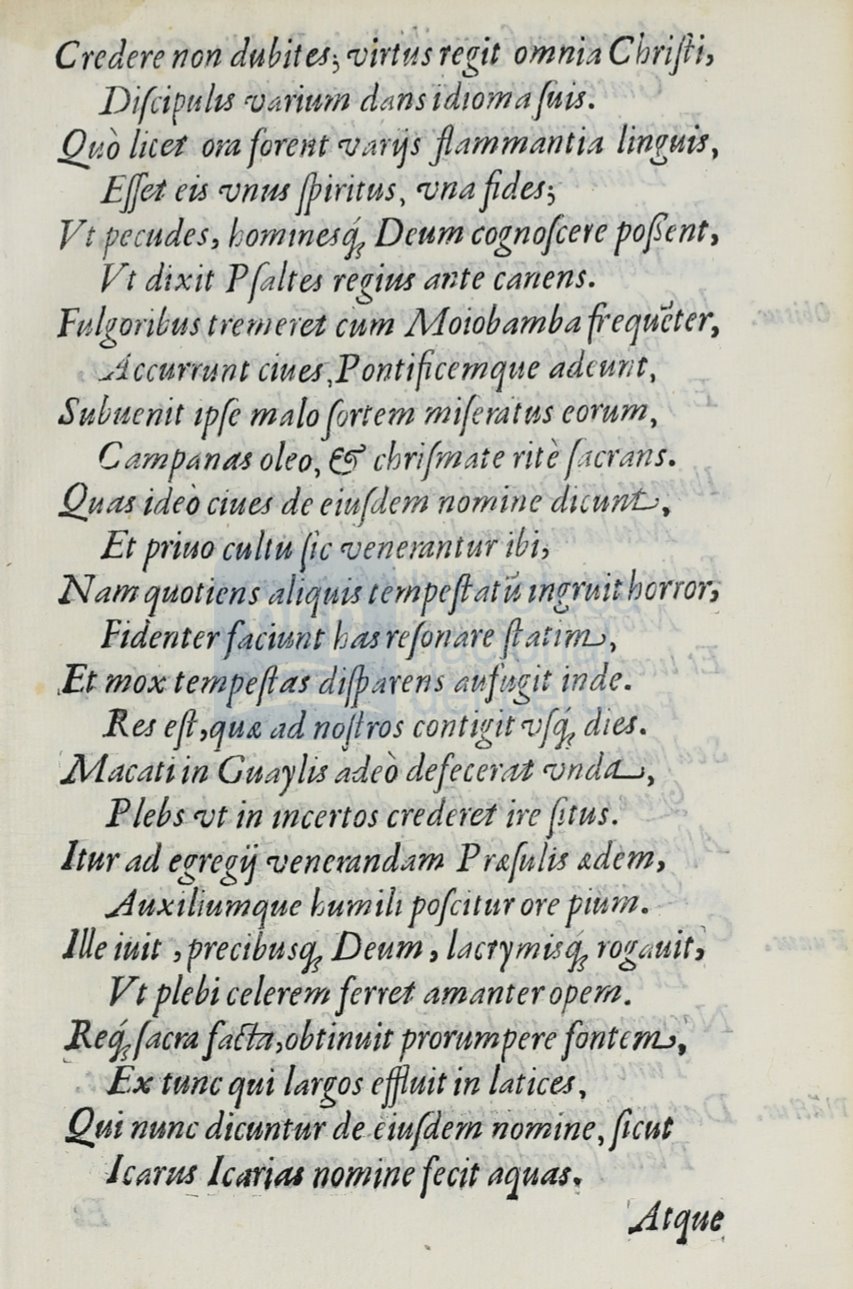 Credere non dubites; virtus regit omnia Chriſti,
Diſcipulis varium dans idioma ſuis.
Quò licet ora forent varijs flammantia linguis,
Eſſet eis vnus ſpiritus, vna fides;
Vt pecudes, hominesq́; Deum cognoſcere poßent,
Vt dixit Pſaltes regius ante canens.
Fulgoribus tremeret cum Moiobamba frequẽter,
Accurrunt ciues, Pontificemque adeunt,
Subuenit ipſe malo ſortem miſeratus eorum,
Campanas oleo, & chriſmate ritè ſacrans.
Quas ideò ciues de eiuſdem nomine dicunt,
Et priuo cultu ſic venerantur ibi,
Nam quotiens aliquis tempeſtatũ ingruit horror,
Fidenter faciunt has reſonare ſtatim,
Et mox tempeſtas diſparens aufugit inde.
Res eſt, quæ ad noſtros contigit vſq́; dies.
Macati in Guaylis adeò defecerat vnda,
Plebs vt in incertos crederet ire ſitus.
Itur ad egregij venerandam Præſulis ædem,
Auxiliumque humili poſcitur ore pium.
Ille iuit, precibusq; Deum, lacrymisq́; rogauit,
Vt plebi celerem ferret amanter opem.
Req́; ſacra facta, obtinuit prorumpere fontem,
Ex tunc qui largos effluit in latices,
Qui nunc dicuntur de eiuſdem nomine, ſicut
Icarus Icarias nomine fecit aquas.
Atque